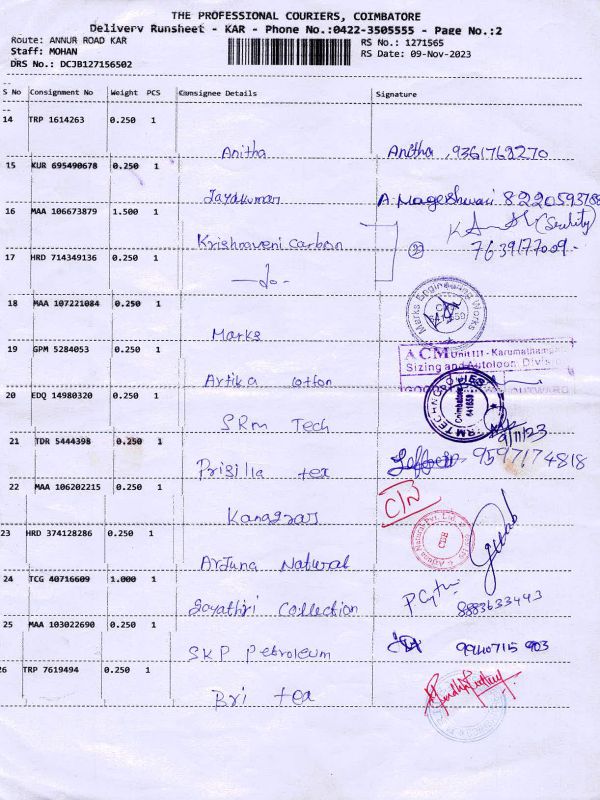 THE PROFESSIONAL COURIERS, COIMBATORE
Delivery Runsheet - KAR - Phone No.:0422-3505555 - Page No.:2
Route: ANNUR ROAD KAR
RS No.: 1271565
Staff: MOHAN
RS Date: 09-Nov-2023
DRS No.: DCJB127156502
S No Consignment No Weight PCS Consignee Details Signature
14 TRP 1614263 0.250 1
Anitha Anitha, 9361762270
15 KUR 695490678 0.250 1
Jayakumar A Mageshwari
16 MAA 106673879 1.500 1
(Security)
Krishnaveni Carbon 2 7639177009-
17 HRD 714349136 0.250 1
-do-
18 MAA 107221084 0.250 1
Marks Engineering Works
641659
Marks
19 GPM 5284053 0.250 1
ACM Unit III - Karumatham
Sizing and Autoloom Divis
Artika Cotton
20 EDQ 14980320 0.250 1
SRM TECHNOLOGIES
Coimbatore
641659
SRM Tech
9/11/23
21 TDR 5444398 0.250 1
Prisilla tex 9597174818
22 MAA 106202215 0.250 1
C/N
Kanagraj
23 HRD 374128286 0.250 1
Arjuna Natural Pvt. Ltd.
Arjuna Natural
24 TCG 40716609 1.000 1
Gayathri Collection 8883633493
25 MAA 103022690 0.250 1
SKP Petroleum 9940715 903
26 TRP 7619494 0.250 1
Bri tex